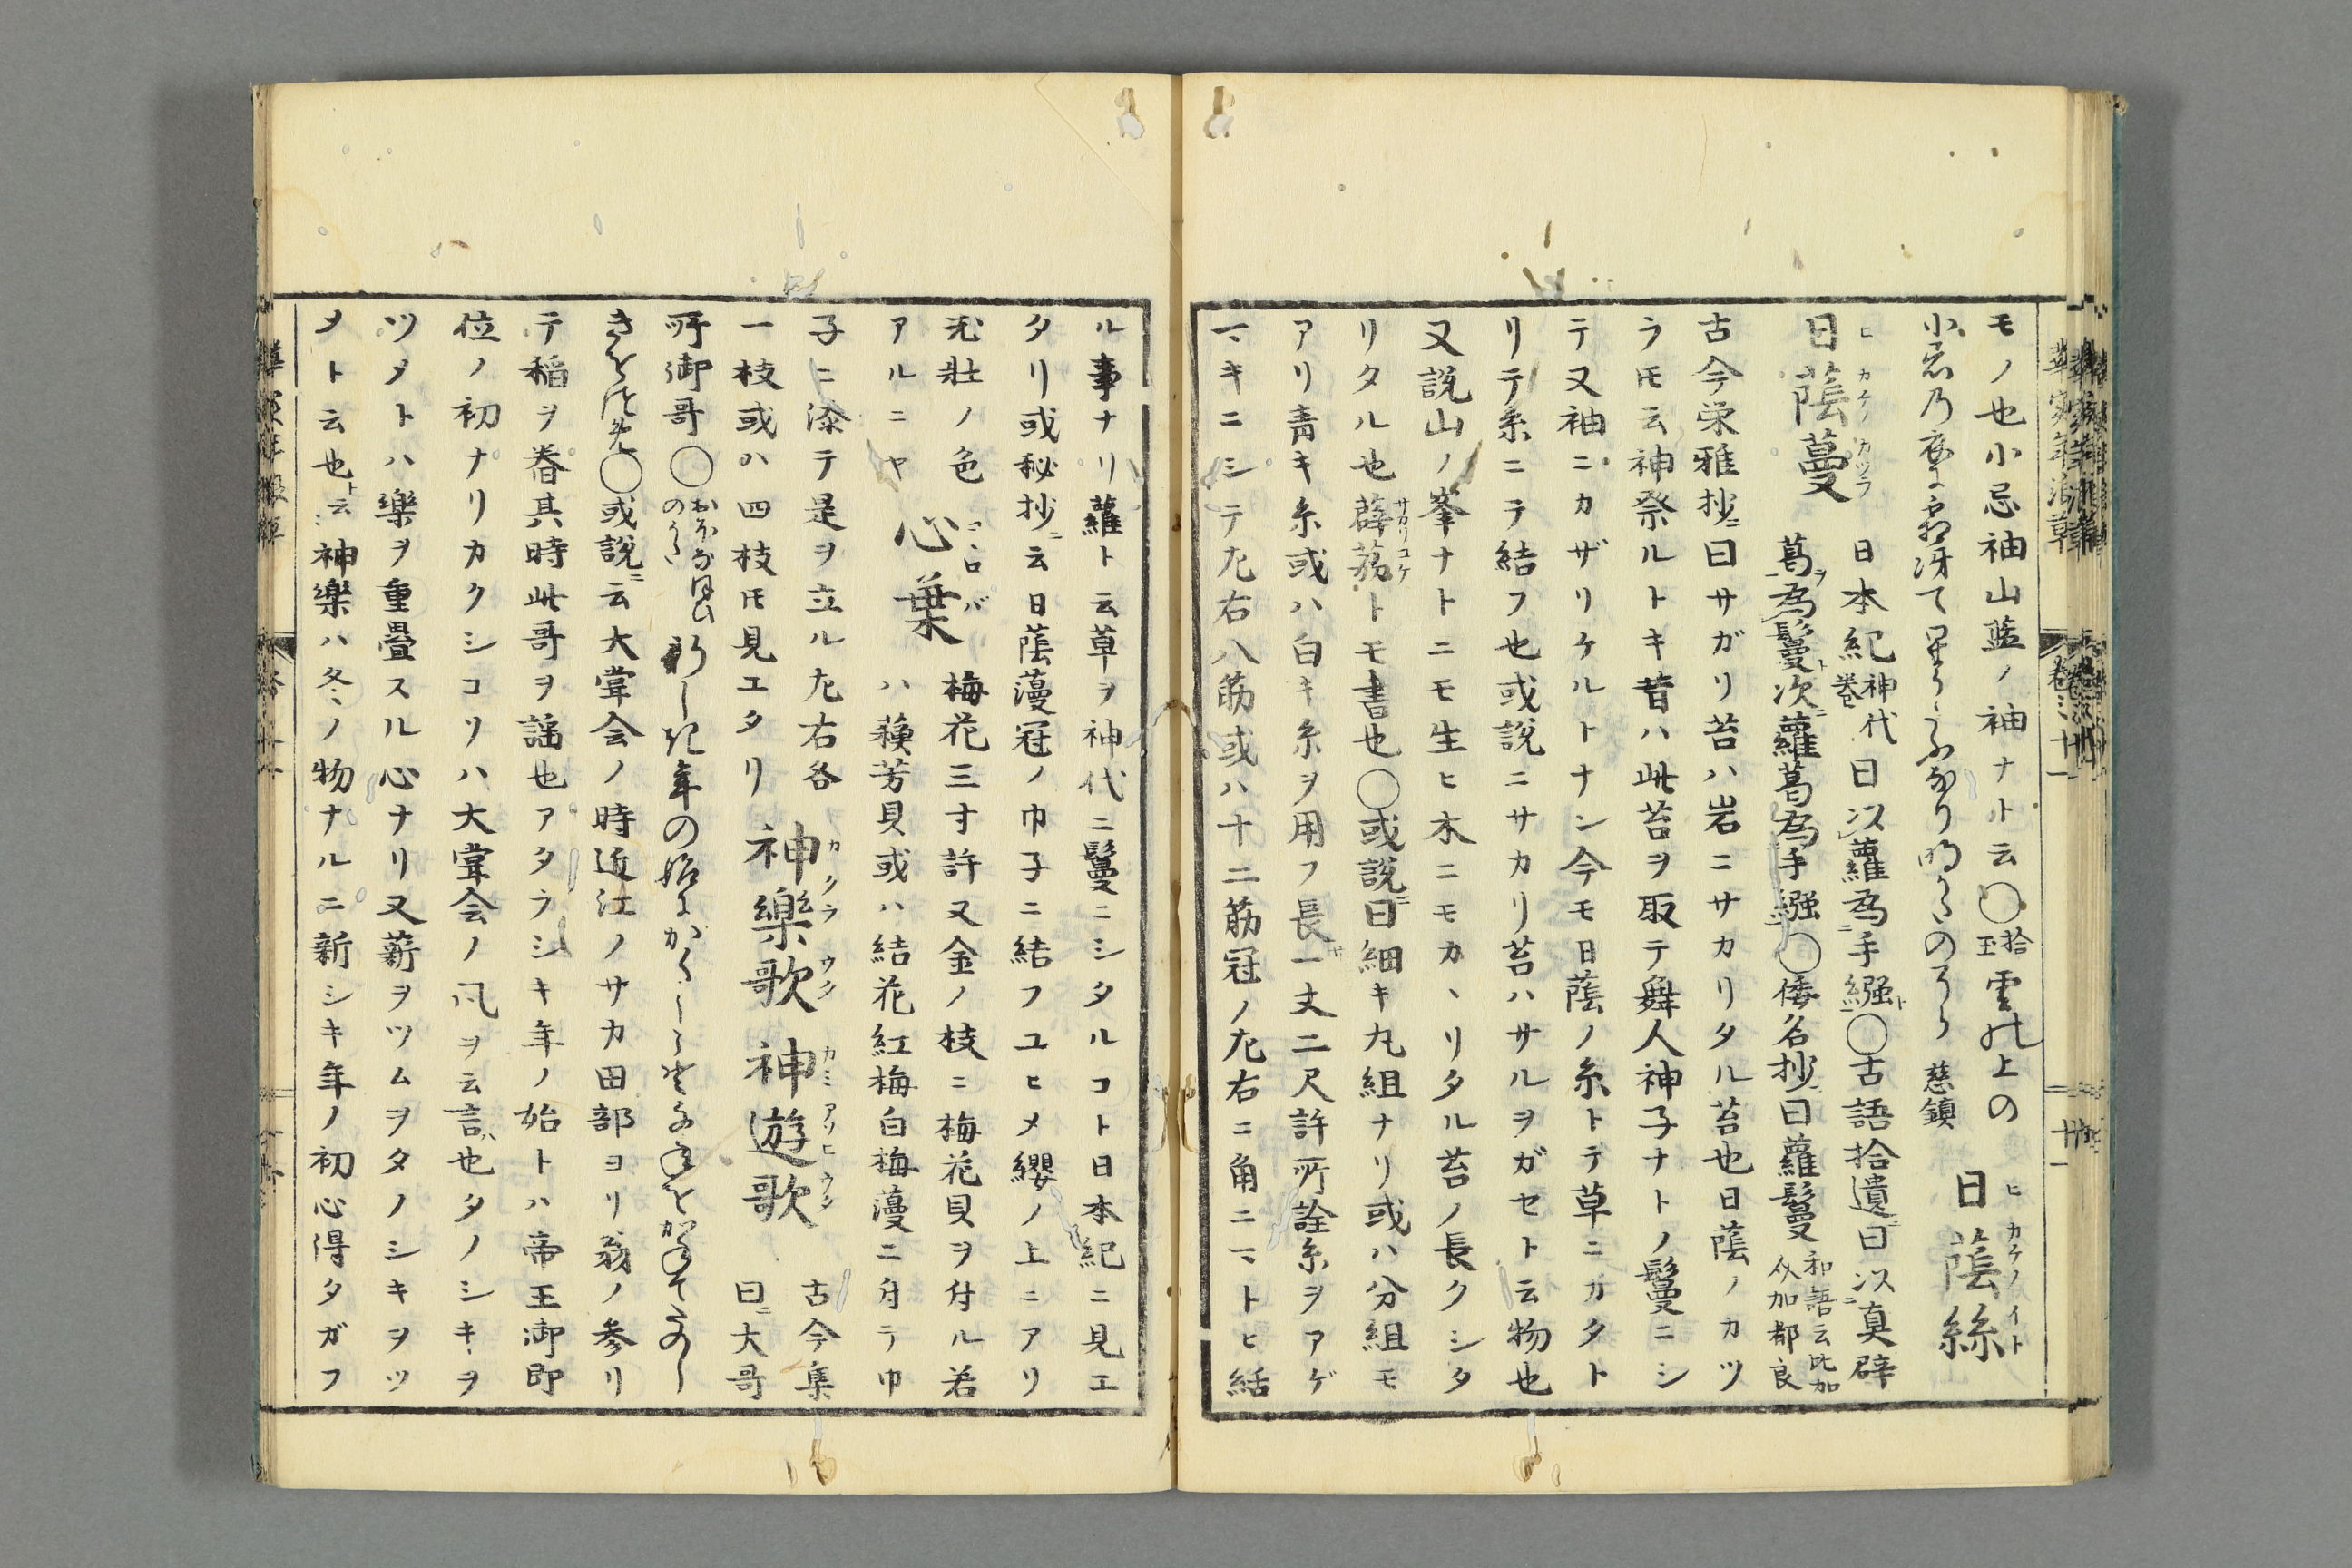 モノ也小忌袖山藍ノ袖ナト云〇拾玉雲の上の 日蔭絲ヒカケノイト
小忌乃 慈鎮
日蔭蔓ヒカケノカツラ 日本紀神代巻曰以蘿為手繦〇古語拾遺ニ曰以真辟
葛為鬘次蘿葛為手繦〇倭名抄曰蘿鬘和語云比加介加都良
古今栄雅抄ニ曰サガリ苔ハ岩ニサカリタル苔也日蔭ノカツ
ラ𪜈云神祭ルトキ昔ハ此苔ヲ取テ舞人神子ナトノ鬘ニシ
テ又袖ニカザリケルトナン今モ日蔭ノ糸トテ草ニカタト
リテ糸ニテ結フ也或説ニサカリ苔ハサルヲガセト云物也
又説山ノ峯ナトニモ生ヒ木ニモカヽリタル苔ノ長クシタ
リタル也薜茘サカリコケトモ書也〇或説ニ曰細キ丸組ナリ或ハ分組モ
アリ青キ糸或ハ白キ糸ヲ用フ長サ一丈二尺許所詮糸ヲアゲ
マキニシテ左右八筋或ハ十二筋冠ノ左右ニ角ニマトヒ結
ル事ナリ蘿ト云草ヲ神代ニ鬘ニシタルコト日本紀ニ見エ
タリ或秘抄ニ云日蔭蔓冠ノ巾子ニ結フユヒメ纓ノ上ニアリ
老壮ノ色アルニヤ 心葉コヽロバ 梅花三寸許又金ノ枝ニ梅花貝ヲ付ル若
ハ蘓芳貝或ハ結花紅梅白梅蔓ニ付テ巾
子ニ添テ是ヲ立ル左右各
一枝或ハ四枝𪜈見エタリ 神樂歌カクラウタ 神遊歌カミアソヒウタ 古今集
曰ニ大哥
所御哥〇おほなほひのうた 新しき年の始にかくしこそ千年をかねてたのし
きをつめ〇或説ニ云大嘗会ノ時近江ノサカ田部ヨリ翁ノ参リ
テ稲ヲ舂其時此哥ヲ謡也アタラシキ年ノ始トハ帝王御即
位ノ初ナリカクシコソハ大嘗会ノ風ヲ云言也タノシキヲ
ツメトハ樂ヲ重畳スル心ナリ又薪ヲツムヲタノシキヲツ
メト云也ト云〻神樂ハ冬ノ物ナルニ新シキ年ノ初心得タガフ